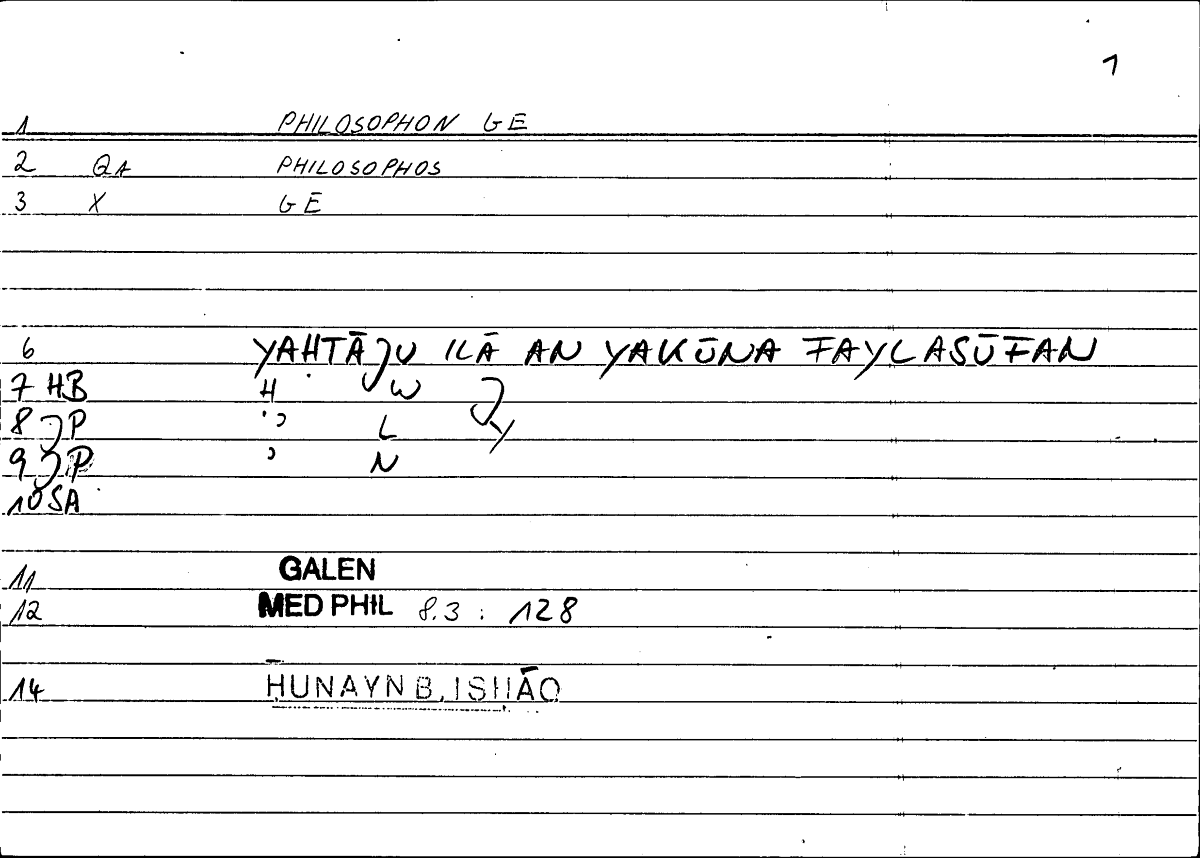 1
1 PHILOSOPHON GE
2 QA PHILOSOPHOS
3 X GĒ
6 YAHTĀJU ILĀ AN YAKŪNA FAYLASŪFAN
7 HB H W J
8 JP " L Y
9 JP " N
10 SA
11 GALEN
12 MED PHIL 8.3 : 128
14 HUNAYN B. ISHĀQ